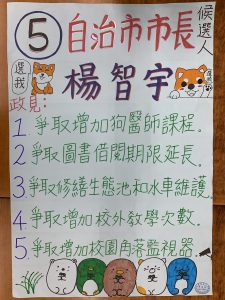 5
自治市市長
候選人
選我
楊智宇
政見:
1. 爭取增加狗醫師課程.
2. 爭取圖書借閱期限延長.
3. 爭取修繕生態池和水車維護.
4. 爭取增加校外教學次數.
5. 爭取增加校園角落監視器.